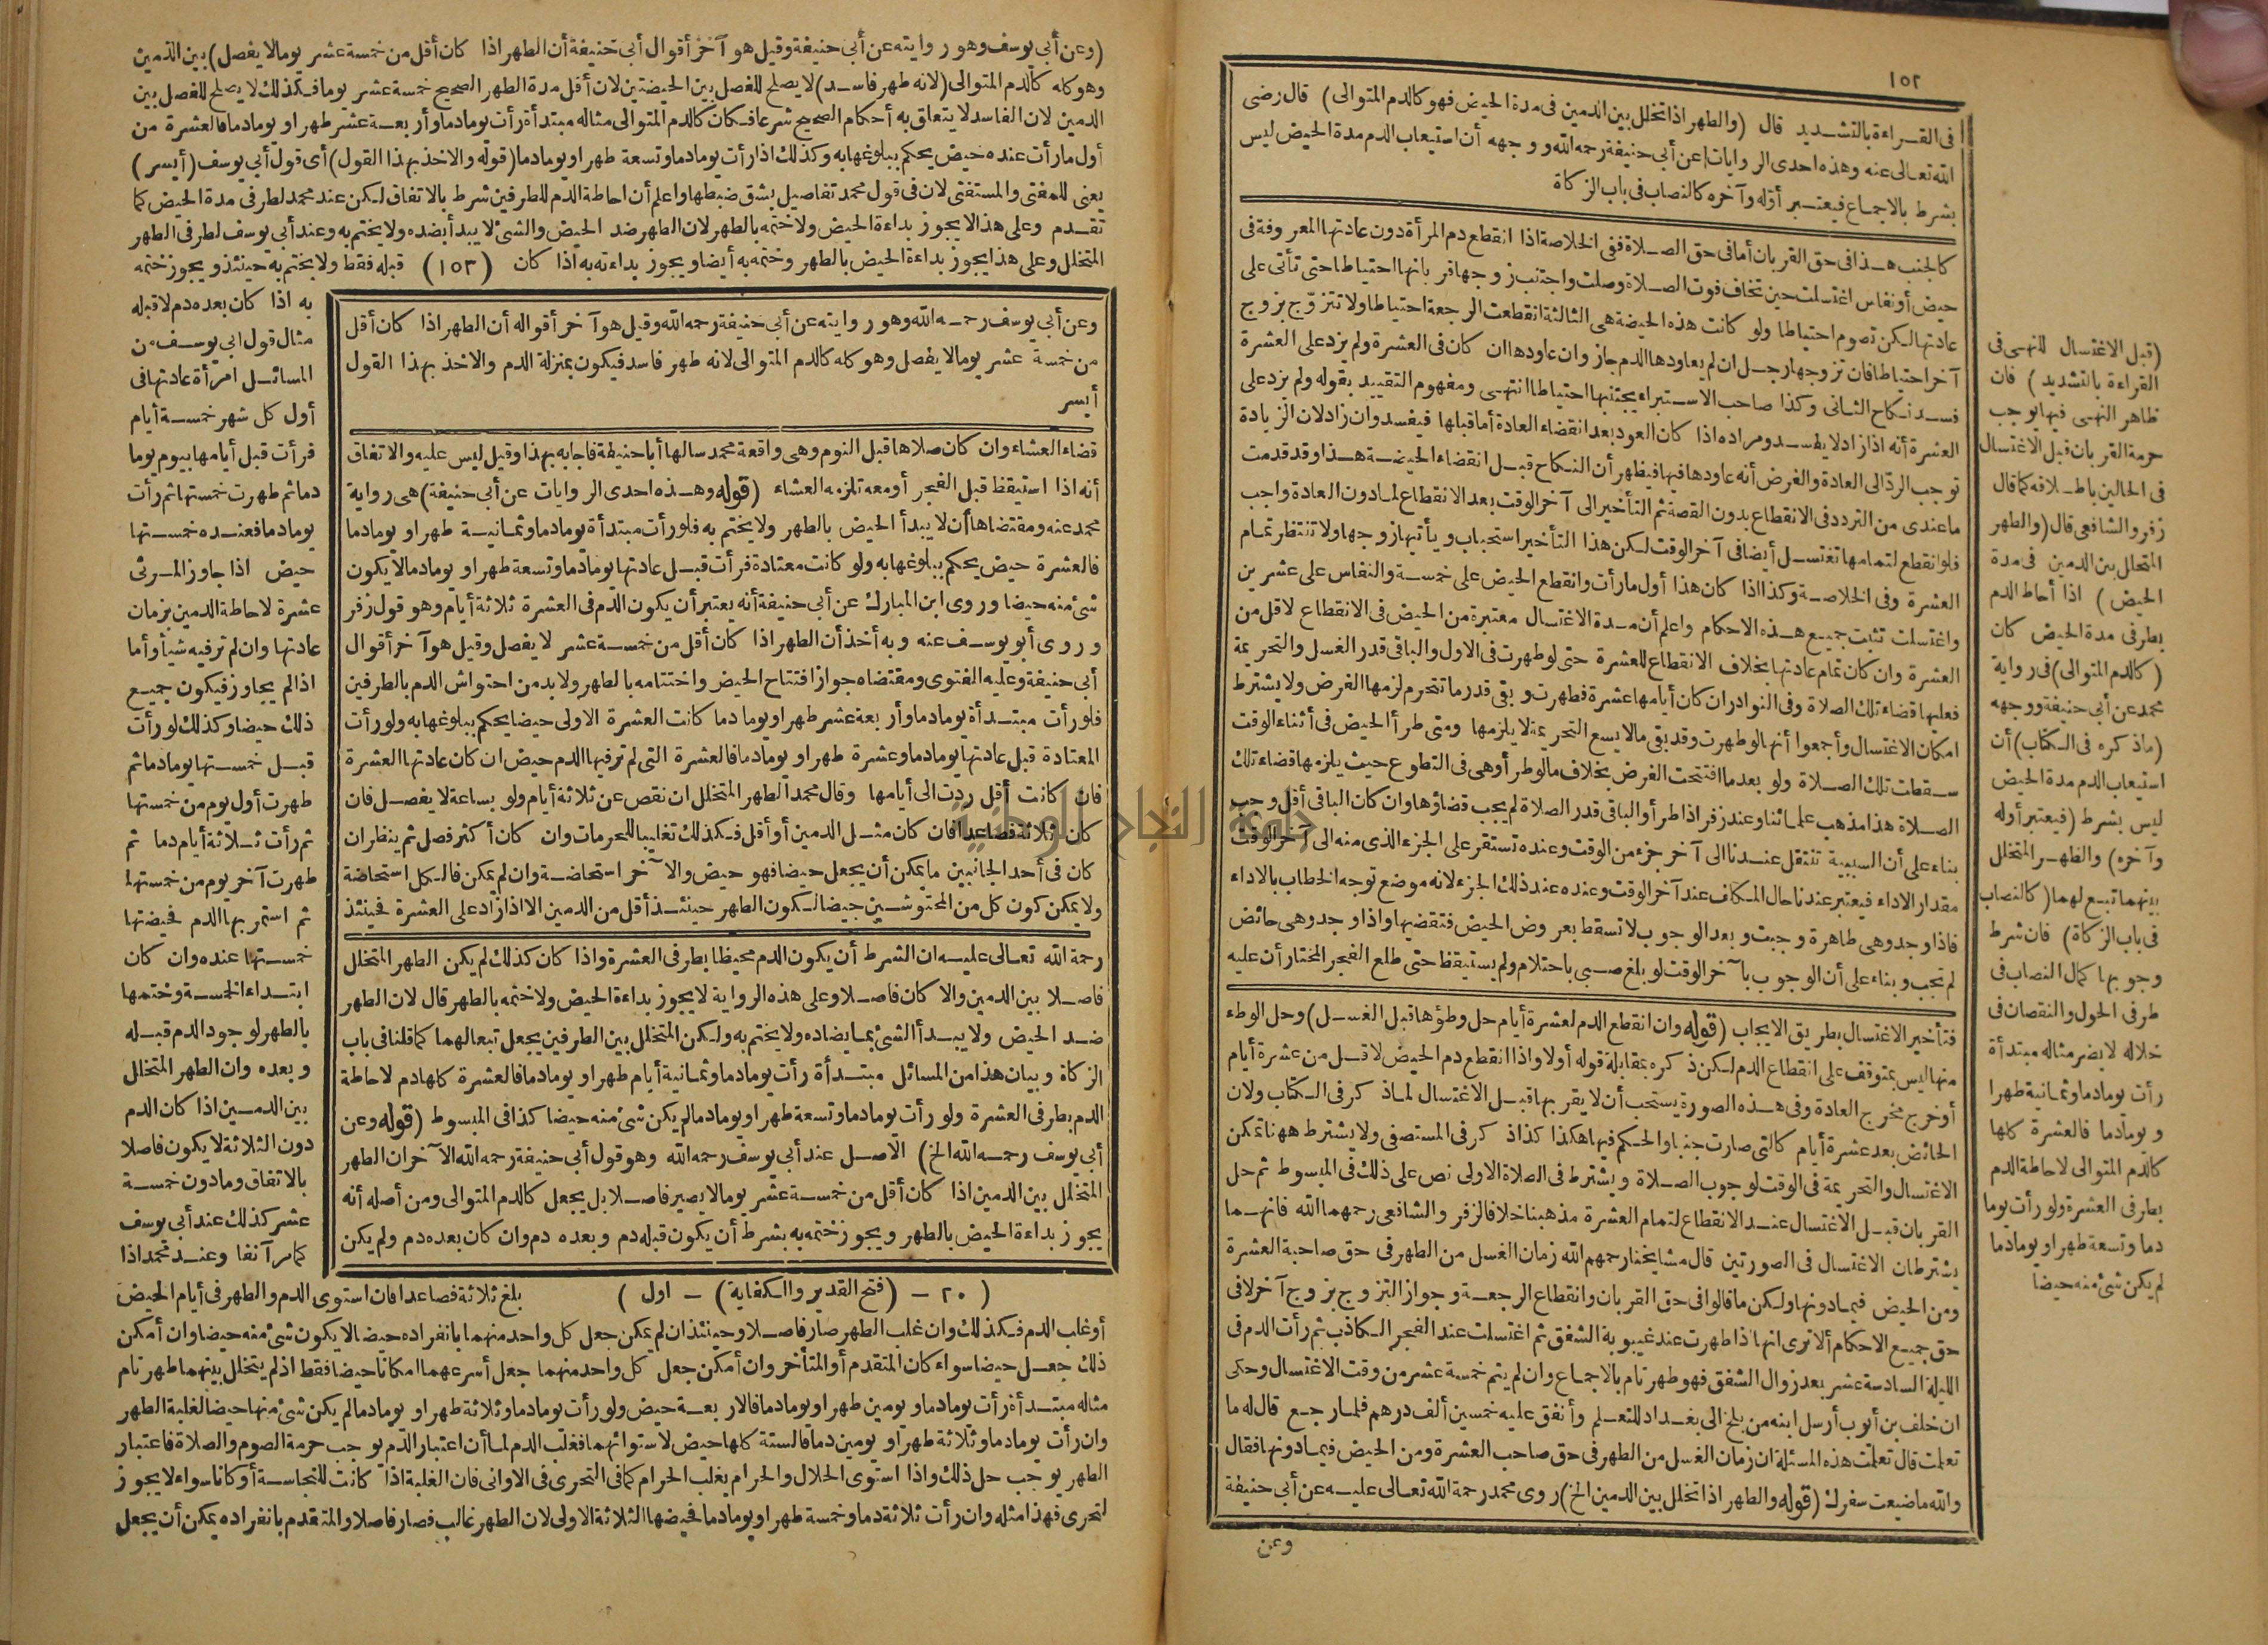 ١٥٢
فى القراءة بالتشديد قال (والطهر اذا تخلل بين الدمين فى مدة الحيض فهو كالدم المتوالى) قال رضى
الله تعالى عنه وهذه احدى الروايات عن أبى حنيفة رحمه الله ووجهه أن استيعاب الدم مدة الحيض ليس
بشرط بالاجماع فيعتبر أوله وآخره كالنصاب فى باب الزكاة
كالجنب هذا فى حق القربان أما فى حق الصلاة ففى الخلاصة اذا انقطع دم المرأة دون عادتها المعروفة فى
حيض أو نفاس اغتسلت حين تخاف فوت الصلاة وصلت واجتنب زوجها قربانها احتياطا حتى تأتى على
عادتها لكن تصوم احتياطا ولو كانت هذه الحيضة هى الثالثة انقطعت الرجعة احتياطا ولا تتزوّج بزوج
آخر احتياطا فان تزوجها رجل ان لم يعاودها الدم جاز وان عاودها ان كان فى العشرة ولم يزد على العشرة
فسد نكاح الثانى وكذا صاحب الاستبراء يجتنبها احتياطا انتهى ومفهوم التقييد بقوله ولم يزد على
العشرة أنه اذا زاد لا يفسد ومراده اذا كان العود بعد انقضاء العادة أما قبلها فيفسد وان زاد لان الزيادة
توجب الردّ الى العادة والفرض أنه عاودها فيها فيظهر أن النكاح قبل انقضاء الحيضة هذا وقد قدمت
ما عندى من التردد فى الانقطاع بدون القصة ثم التأخير الى آخر الوقت بعد الانقطاع لمادون العادة واجب
فلو انقطع لتمامها تغتسل أيضا فى آخر الوقت لكن هذا التأخير استحباب ويأتيها زوجها ولا تنتظر تمام
العشرة وفى الخلاصة وكذا اذا كان هذا أول ما رأت وانقطع الحيض على خمسة والنفاس على عشرين
واغتسلت تثبت جميع هذه الاحكام واعلم أن مدة الاغتسال معتبرة من الحيض فى الانقطاع لاقل من
العشرة وان كان تمام عادتها بخلاف الانقطاع للعشرة حتى لو طهرت فى الاول والباقى قدر الغسل والتحريمة
فعليها قضاء تلك الصلاة وفى النوادر ان كان أيامها عشرة فطهرت وبقى قدر ما تتحرم لزمها الفرض ولا يشترط
امكان الاغتسال وأجمعوا أنها لو طهرت وقد بقى مالا يسع التحريمة لا يلزمها ومتى طرأ الحيض فى أثناء الوقت
سقطت تلك الصلاة ولو بعدما افتتحت الفرض بخلاف مالو طرأ وهى فى التطوع حيث يلزمها قضاء تلك
الصلاة هذا مذهب علمائنا وعند زفر اذا طرأ والباقى قدر الصلاة لم يجب قضاؤها وان كان الباقى أقل وجب
بناء على أن السببية تنتقل عندنا الى آخر جزء من الوقت وعنده تستقر على الجزء الذى منه الى آخر الوقت
مقدار الاداء فيعتبر عندنا حال المكلف عند آخر الوقت وعنده عند ذلك الجزء لانه موضع توجه الخطاب بالاداء
فاذا وجد وهى طاهرة وجبت وبعد الوجوب لا تسقط بعروض الحيض فتقضيها واذا وجد وهى حائض
لم تجب وبناء على أن الوجوب بآخر الوقت لو بلغ صبى باحتلام ولم يستيقظ حتى طلع الفجر المختار أن عليه
فتأخير الاغتسال بطريق الايجاب (قوله وان انقطع الدم لعشرة أيام حل وطؤها قبل الغسل) وحل الوطء
منها ليس بمتوقف على انقطاع الدم لكن ذكره بمقابلة قوله أولا واذا انقطع دم الحيض لاقل من عشرة أيام
أو خرج مخرج العادة وفى هذه الصورة يستحب أن لا يقربها قبل الاغتسال لماذكر فى الكتاب ولان
الحائض بعد عشرة أيام كالتى صارت جنبا والحكم فيها هكذا كذا ذكر فى المستصفى ولا يشترط ههنا تمكن
الاغتسال والتحريمة فى الوقت لوجوب الصلاة ويشترط فى الصلاة الاولى نص على ذلك فى المبسوط ثم حل
القربان قبل الاغتسال عند الانقطاع لتمام العشرة مذهبنا خلافا لزفر والشافعى رحمهما الله فانهما
يشترطان الاغتسال فى الصورتين قال مشايخنا رحمهم الله زمان الغسل من الطهر فى حق صاحبة العشرة
ومن الحيض فيمادونها ولكن ما قالوا فى حق القربان وانقطاع الرجعة وجواز التزوج بزوج آخر لا فى
حق جميع الاحكام ألا ترى انها اذا طهرت عند غيبوبة الشفق ثم اغتسلت عند الفجر الكاذب ثم رأت الدم فى
الليلة السادسة عشر بعد زوال الشفق فهو طهر تام بالاجماع وان لم يتم خمسة عشر من وقت الاغتسال وحكى
ان خلف بن أيوب أرسل ابنه من بلخ الى بغداد للتعلم وأنفق عليه خمسين ألف درهم فلما رجع قال له ما
تعلمت قال تعلمت هذه المسئلة ان زمان الغسل من الطهر فى حق صاحب العشرة ومن الحيض فيمادونها فقال
والله ما ضيعت سفرك (قوله والطهر اذا تخلل بين الدمين الخ) روى محمد رحمة الله تعالى عليه عن أبى حنيفة
وعن
(قبل الاغتسال للنهى فى
القراءة بالتشديد) فان
ظاهر النهى فيها يوجب
حرمة القربان قبل الاغتسال
فى الحالين باطلاقه كما قال
زفر والشافعى قال (والطهر
المتخلل بين الدمين فى مدة
الحيض) اذا أحاط الدم
بطرفى مدة الحيض كان
(كالدم المتوالى) فى رواية
محمد عن أبى حنيفة ووجهه
(ماذكره فى الكتاب) أن
استيعاب الدم مدة الحيض
ليس بشرط (فيعتبر أوله
وآخره) والطهر المتخلل
بينهما تبع لهما (كالنصاب
فى باب الزكاة) فان شرط
وجوبها كمال النصاب فى
طرفى الحول والنقصان فى
خلاله لا يضر مثاله مبتدأة
رأت يوما دما وثمانية طهرا
ويوما دما فالعشرة كلها
كالدم المتوالى لاحاطة الدم
بطرفى العشرة ولو رأت يوما
دما وتسعة طهرا ويوما دما
لم يكن شئ منه حيضا
(وعن أبى يوسف وهو روايته عن أبى حنيفة وقيل هو آخر أقوال أبى حنيفة أن الطهر اذا كان أقل من خمسة عشر يوما لا يفصل) بين الدمين
وهو كله كالدم المتوالى (لانه طهر فاسد) لا يصلح للفصل بين الحيضتين لان أقل مدة الطهر الصحيح خمسة عشر يوما فكذلك لا يصلح للفصل بين
الدمين لان الفاسد لا يتعلق به أحكام الصحيح شرعا فكان كالدم المتوالى مثاله مبتدأة رأت يوما دما وأربعة عشر طهرا ويوما دما فالعشرة من
أول ما رأت عنده حيض يحكم ببلوغها به وكذلك اذا رأت يوما دما وتسعة طهرا ويوما دما (قوله والاخذ بهذا القول) أى قول أبى يوسف (أيسر)
يعنى للمفتى والمستفتى لان فى قول محمد تفاصيل يشق ضبطها واعلم أن احاطة الدم للطرفين شرط بالاتفاق لكن عند محمد لطرفى مدة الحيض كما
تقدم وعلى هذا لا يجوز بداءة الحيض ولا ختمه بالطهر لان الطهر ضد الحيض والشئ لا يبدأ بضده ولا يختم به وعند أبى يوسف لطرفى الطهر
المتخلل وعلى هذا يجوز بداءة الحيض بالطهر وختمه به أيضا ويجوز بداءته به اذا كان (١٥٣) قبله فقط ولا يختم به حينئذ ويجوز ختمه
به اذا كان بعده دم لا قبله
مثال قول أبى يوسف من
المسائل امرأة عادتها فى
أول كل شهر خمسة أيام
فرأت قبل أيامها بيوم يوما
دما ثم طهرت خمستها ثم رأت
يوما دما فعنده خمستها
حيض اذا جاوز المرئى
عشرة لاحاطة الدمين بزمان
عادتها وان لم تر فيه شيأ وأما
اذا لم يجاوز فيكون جميع
ذلك حيضا وكذلك لو رأت
قبل خمستها يوما دما ثم
طهرت أول يوم من خمستها
ثم رأت ثلاثة أيام دما ثم
طهرت آخر يوم من خمستها
ثم استمر بها الدم فحيضتها
خمستها عنده وان كان
ابتداء الخمسة وختمها
بالطهر لوجود الدم قبله
وبعده وان الطهر المتخلل
بين الدمين اذا كان الدم
دون الثلاثة لا يكون فاصلا
بالاتفاق ومادون خمسة
عشر كذلك عند أبى يوسف
كما مر آنفا وعند محمد اذا
وعن أبى يوسف رحمه الله وهو روايته عن أبى حنيفة رحمه الله وقيل هو آخر أقواله أن الطهر اذا كان أقل
من خمسة عشر يوما لا يفصل وهو كله كالدم المتوالى لانه طهر فاسد فيكون بمنزلة الدم والاخذ بهذا القول
أيسر
قضاء العشاء وان كان صلاها قبل النوم وهى واقعة محمد سالها أبا حنيفة فاجابه بهذا وقيل ليس عليه والاتفاق
أنه اذا استيقظ قبل الفجر أو معه تلزمه العشاء (قوله وهذه احدى الروايات عن أبى حنيفة) هى رواية
محمد عنه ومقتضاها أن لا يبدأ الحيض بالطهر ولا يختم به فلو رأت مبتدأة يوما دما وثمانية طهرا ويوما دما
فالعشرة حيض يحكم ببلوغها به ولو كانت معتادة فرأت قبل عادتها يوما دما وتسعة طهرا ويوما دما لا يكون
شئ منه حيضا وروى ابن المبارك عن أبى حنيفة أنه يعتبر أن يكون الدم فى العشرة ثلاثة أيام وهو قول زفر
وروى أبو يوسف عنه وبه أخذ أن الطهر اذا كان أقل من خمسة عشر لا يفصل وقيل هو آخر أقوال
أبى حنيفة وعليه الفتوى ومقتضاه جواز افتتاح الحيض واختتامه بالطهر ولا بد من احتواش الدم بالطرفين
فلو رأت مبتدأة يوما دما وأربعة عشر طهرا ويوما دما كانت العشرة الاولى حيضا يحكم ببلوغها به ولو رأت
المعتادة قبل عادتها يوما دما وعشرة طهرا ويوما دما فالعشرة التى لم تر فيها الدم حيض ان كان عادتها العشرة
فان كانت أقل ردت الى أيامها وقال محمد الطهر المتخلل ان نقص عن ثلاثة أيام ولو بساعة لا يفصل فان
كان ثلاثة فصاعدا فان كان مثل الدمين أو أقل فكذلك تغليبا للمحرمات وان كان أكثر فصل ثم ينظر ان
كان فى أحد الجانبين ما يمكن أن يجعل حيضا فهو حيض والآخر استحاضة وان لم يمكن فالكل استحاضة
ولا يمكن كون كل من المحتوشين حيضا لكون الطهر حينئذ أقل من الدمين الا اذا زاد على العشرة فحينئذ
رحمة الله تعالى عليه ان الشرط أن يكون الدم محيطا بطرفى العشرة واذا كان كذلك لم يكن الطهر المتخلل
فاصلا بين الدمين والا كان فاصلا وعلى هذه الرواية لا يجوز بداءة الحيض ولا ختمه بالطهر قال لان الطهر
ضد الحيض ولا يبدأ الشئ بمايضاده ولا يختم به ولكن المتخلل بين الطرفين يجعل تبعا لهما كما قلنا فى باب
الزكاة وبيان هذا من المسائل مبتدأة رأت يوما دما وثمانية أيام طهرا ويوما دما فالعشرة كلها دم لاحاطة
الدم بطرفى العشرة ولو رأت يوما دما وتسعة طهرا ويوما دما لم يكن شئ منه حيضا كذا فى المبسوط (قوله وعن
أبى يوسف رحمه الله الخ) الأصل عند أبى يوسف رحمه الله وهو قول أبى حنيفة رحمه الله الآخر ان الطهر
المتخلل بين الدمين اذا كان أقل من خمسة عشر يوما لا يصير فاصلا بل يجعل كالدم المتوالى ومن أصله أنه
يجوز بداءة الحيض بالطهر ويجوز ختمه به بشرط أن يكون قبله دم وبعده دم وان كان بعده دم ولم يكن
(٢٠ – (فتح القدير والكفاية) – اول) بلغ ثلاثة فصاعدا فان استوى الدم والطهر فى أيام الحيض
أو غلب الدم فكذلك وان غلب الطهر صار فاصلا وحينئذ ان لم يمكن جعل كل واحد منهما بانفراده حيضا لا يكون شئ منه حيضا وان أمكن
ذلك جعل حيضا سواء كان المتقدم أو المتأخر وان أمكن جعل كل واحد منهما جعل أسرعهما امكانا حيضا فقط اذ لم يتخلل بينهما طهر تام
مثاله مبتدأة رأت يوما دما ويومين طهرا ويوما دما فالاربعة حيض ولو رأت يوما دما وثلاثة طهرا ويوما دما لم يكن شئ منها حيضا لغلبة الطهر
وان رأت يوما دما وثلاثة طهرا ويومين دما فالستة كلها حيض لاستوائهما فغلب الدم لما أن اعتبار الدم يوجب حرمة الصوم والصلاة فاعتبار
الطهر يوجب حل ذلك واذا استوى الحلال والحرام يغلب الحرام كما فى التحرى فى الاوانى فان الغلبة اذا كانت للنجاسة أو كانا سواء لا يجوز
لتحرى فهذا مثله وان رأت ثلاثة دما وخمسة طهرا ويوما دما فحيضها الثلاثة الاولى لان الطهر غالب فصار فاصلا والمتقدم بانفراده يمكن أن يجعل
جامعة النجاح الوطنية